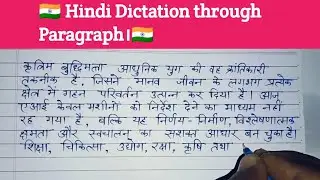 🇮🇳 Hindi Dictation through
Paragraph।🇮🇳
कृत्रिम बुद्धिमत्ता आधुनिक युग की वह क्रांतिकारी
तकनीक है, जिसने मानव जीवन के लगभग प्रत्येक
क्षेत्र में गहन परिवर्तन उत्पन्न कर दिया है। आज
एआई केवल मशीनों को निर्देश देने का माध्यम नहीं
रह गया है, बल्कि यह निर्णय-निर्माण, विश्लेषणात्मक
क्षमता और स्वचालन का सशक्त आधार बन चुका है।
शिक्षा, चिकित्सा, उद्योग, रक्षा, कृषि तथा